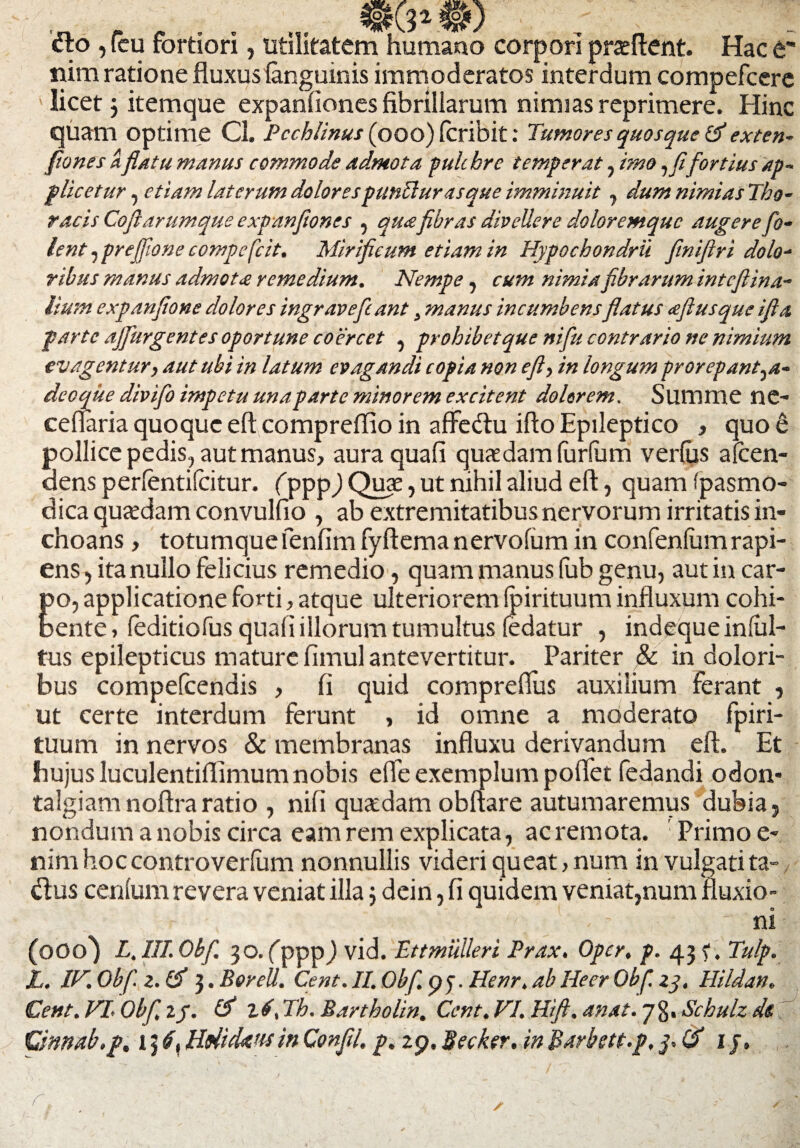 (32)
cto , ſeu fortiori , utilitatem humano corpori præſtent. Hac e-
nim ratione fluxus ſanguinis immoderatos interdum compeſcere
licet ; itemque expanſiones fibrillarum nimias reprimere. Hinc
quam optime Cl. Pechlinus (ooo) ſcribit : Tumores quosque & exten-
ſiones à flatu manus commode admota pulchre temperat , imo , ſi fortius ap-
plicetur , etiam laterum dolores puncturasque imminuit , dum nimias Tho-
racis Coſtarumque expanſiones , quæ fibras divellere doloremque augere ſo-
lent , preſſione compeſcit. Mirificum etiam in Hypochondrii ſiniſtri dolo-
ribus manus admotæ remedium. Nempe , cum nimia fibrarum inteſtina-
lium expanſione dolores ingraveſcant , manus incumbens flatus æſtusque iſta
parte aſſurgentes oportune coërcet , prohibetque niſu contrario ne nimium
evagentur, aut ubi in latum evagandi copia non eſt, in longum prorepant,a-
deoque diviſo impetu una parte minorem excitent dolorem. Summe ne-
ceſſaria quoque eſt compreſſio in affectu iſto Epileptico , quo è
pollice pedis, aut manus, aura quaſi quædam ſurſum verſus aſcen-
dens perſentiſcitur. (ppp) Quæ , ut nihil aliud eſt , quam ſpasmo-
dica quædam convulſio , ab extremitatibus nervorum irritatis in-
choans , totumque ſenſim ſyſtema nervoſum in conſenſum rapi-
ens , ita nullo felicius remedio , quam manus ſub genu, aut in car-
po, applicatione forti , atque ulteriorem ſpirituum influxum cohi-
bente , ſeditioſus quaſi illorum tumultus ſedatur , indeque inſul-
tus epilepticus mature ſimul antevertitur. Pariter & in dolori-
bus compeſcendis , ſi quid compreſſus auxilium ferant ,
ut certe interdum ferunt , id omne a moderato ſpiri-
tuum in nervos & membranas influxu derivandum eſt. Et
hujus luculentiſſimum nobis eſſe exemplum poſſet ſedandi odon-
talgiam noſtra ratio , niſi quædam obſtare autumaremus dubia ,
nondum a nobis circa eam rem explicata , ac remota. Primo e-
nim hoc controverſum nonnullis videri queat , num in vulgati ta-
ctus cenſum revera veniat illa ; dein , ſi quidem veniat,num fluxio-
ni
(ooo) L. III. Obſ. 30. (ppp) vid. Ettmülleri Prax. Oper. p. 43 ſ. Tulp.
L. IV. Obſ. 2. & 3. Borell. Cent. II. Obſ. 95. Henr. ab Heer Obſ. 23. Hildan.
Cent. VI. Obſ. 25. & 26. Th. Bartholin. Cent. VI. Hiſt. anat. 78. Schulz de
Cinnab. p. 136. Holidæus in Conſil. p. 29. Becker. in Barbett. p. 3. & 15.